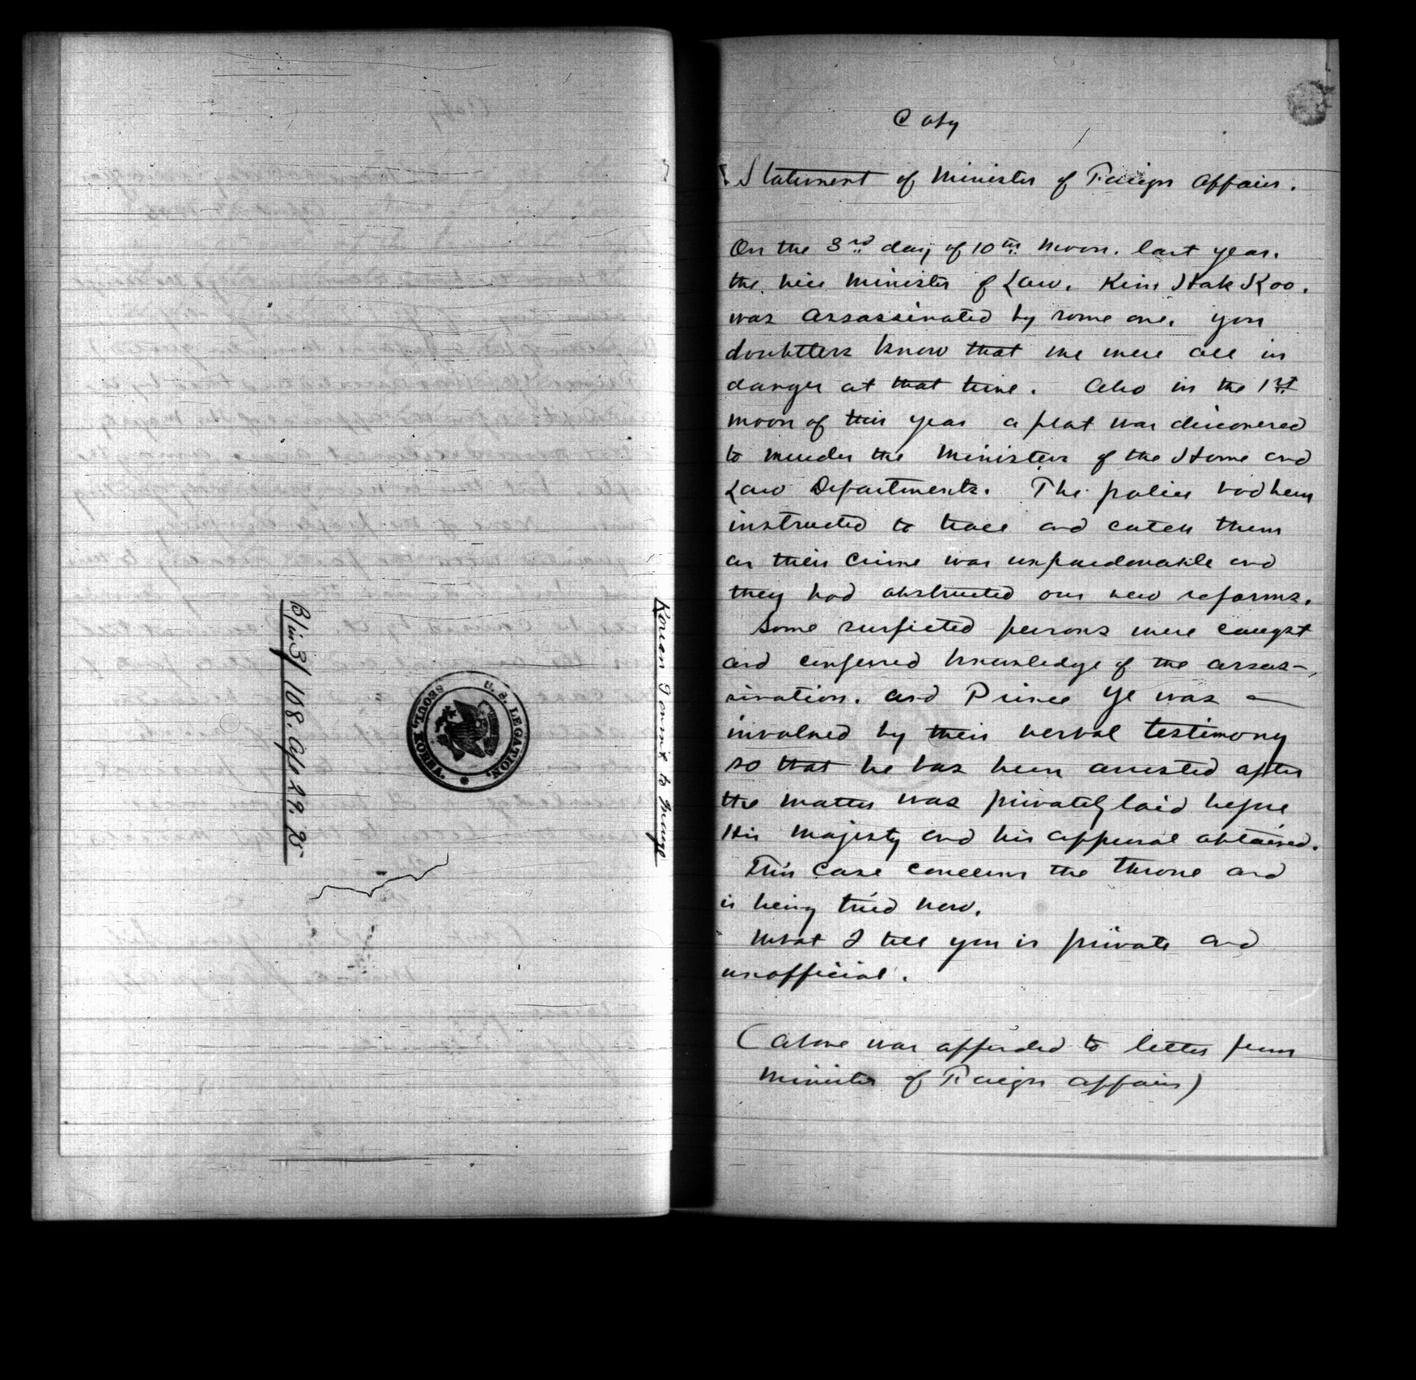 3/in 3/ 108. Apl 29. 95
U.S. LEGATION.
SEOUL, KOREA
Korean Govmt to
Copy
Statement of Minister of Foreign Affairs.
On the 3rd day of 10th moon. last year.
the vice Minister of Law. Kim Hak Koo.
was assassinated by some one. you
doubtless know that we were all in
danger at that time. Also in the 1st
moon of this year a plot was discovered
to murder the Ministers of the Home and
Law Departments. The police had been
instructed to trace and catch them
as their crime was unpardonable and
they had obstructed our new reforms.
Some suspected persons were caught
and confessed knowledge of the assas-
sination. and Prince Ye was
involved by their verbal testimony
so that he has been arrested after
the matter was privately laid before
His Majesty and his approval obtained.
This case concerns the throne and
is being tried now.
What I tell you is private and
unofficial.
(above was appended to letter from
Minister of Foreign Affairs)